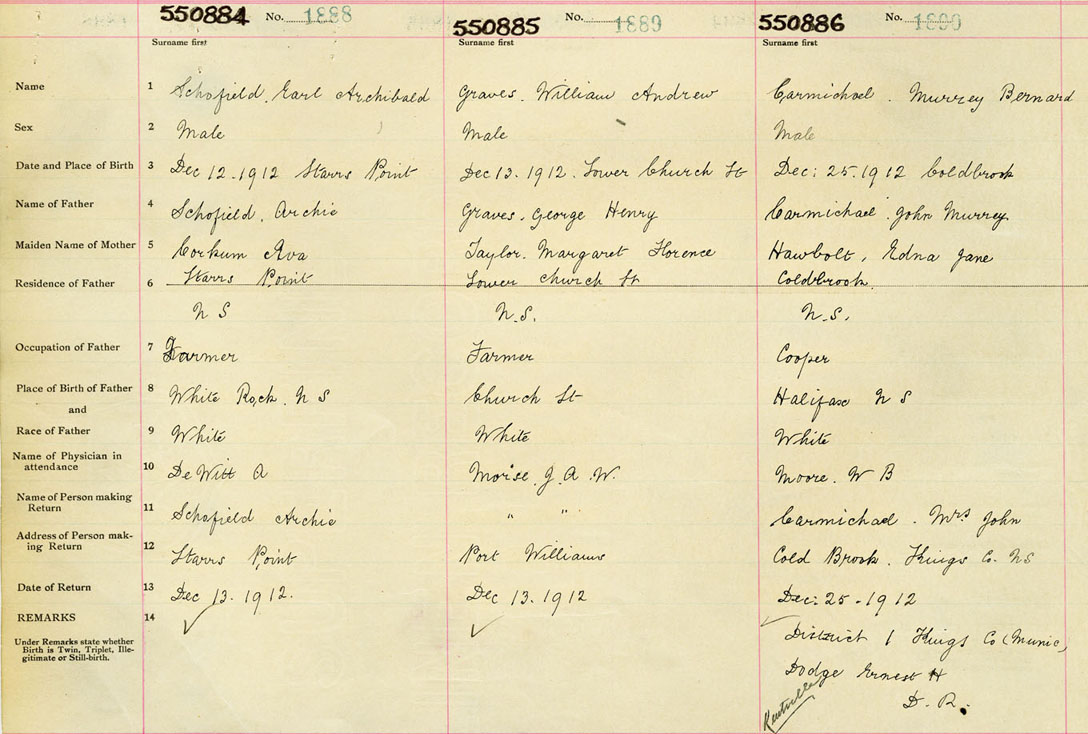 550884 No. 1888 550885 No. 1889 550886 No. 1890
Surname first Surname first Surname first
Name 1 Schofield, Earl Archibald Graves. William Andrew Carmichael. Murrey Bernard
Sex 2 Male Male Male
Date and Place of Birth 3 Dec 12-1912 Starrs Point Dec 13. 1912. Lower Church St Dec: 25-1912 Coldbrook
Name of Father 4 Schofield, Archie Graves, George Henry Carmichael. John Murrey
Maiden Name of Mother 5 Corkum Ava Taylor. Margaret Florence Hawbolt, Edna Jane
Residence of Father 6 Starrs Point Lower Church St Coldbrook.
N S N.S. N.S.
Occupation of Father 7 Farmer Farmer Cooper
Place of Birth of Father 8 White Rock. N S Church St Halifax N S
and
Race of Father 9 White White White
Name of Physician in
attendance 10 DeWitt A Morse. J. A. W. Moore. W B
Name of Person making
Return 11 Schofield Archie " " Carmichael. Mrs John
Address of Person mak-
ing Return 12 Starrs Point Port Williams Cold Brook. Kings Co. NS
Date of Return 13 Dec 13. 1912. Dec 13. 1912 Dec: 25-1912
REMARKS 14 ✓ ✓ ✓
Under Remarks state whether
Birth is Twin, Triplet, Ille-
gitimate or Still-birth.
District 1 Kings Co (Munic)
Dodge Ernest H
D. R.
Kentville